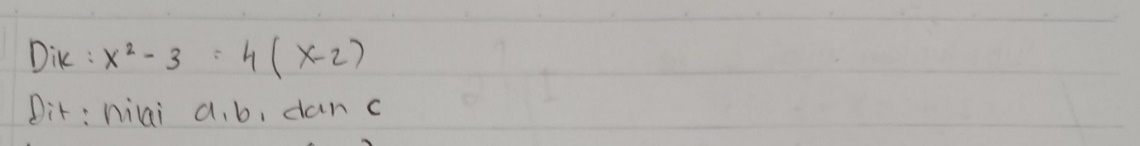 Dik : x² - 3 = 4 ( x-2)
Dit : nilai a, b, dan c